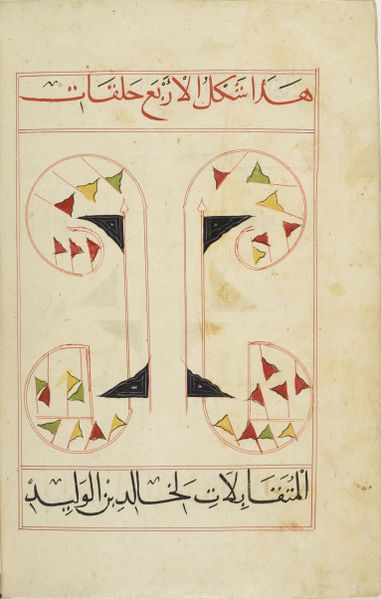 هَذَا شَكْلُ الْأَرْبَعِ حَلَقَات
الْمُتَقَابِلَاتِ لِخَالِدِ بْنِ الْوَلِيدِ